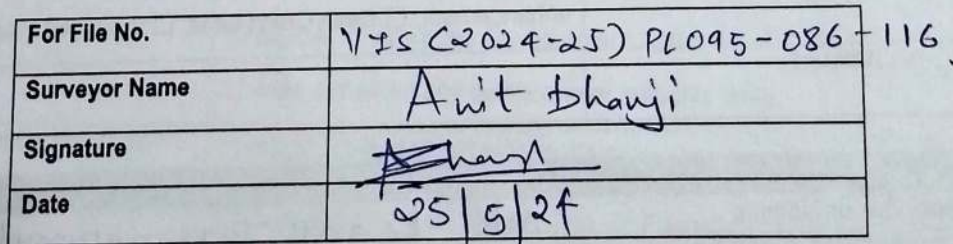 For File No. VIS (2024-25) PL095-086-116
Surveyor Name Anit Dhanji
Signature
Date 25/5/24